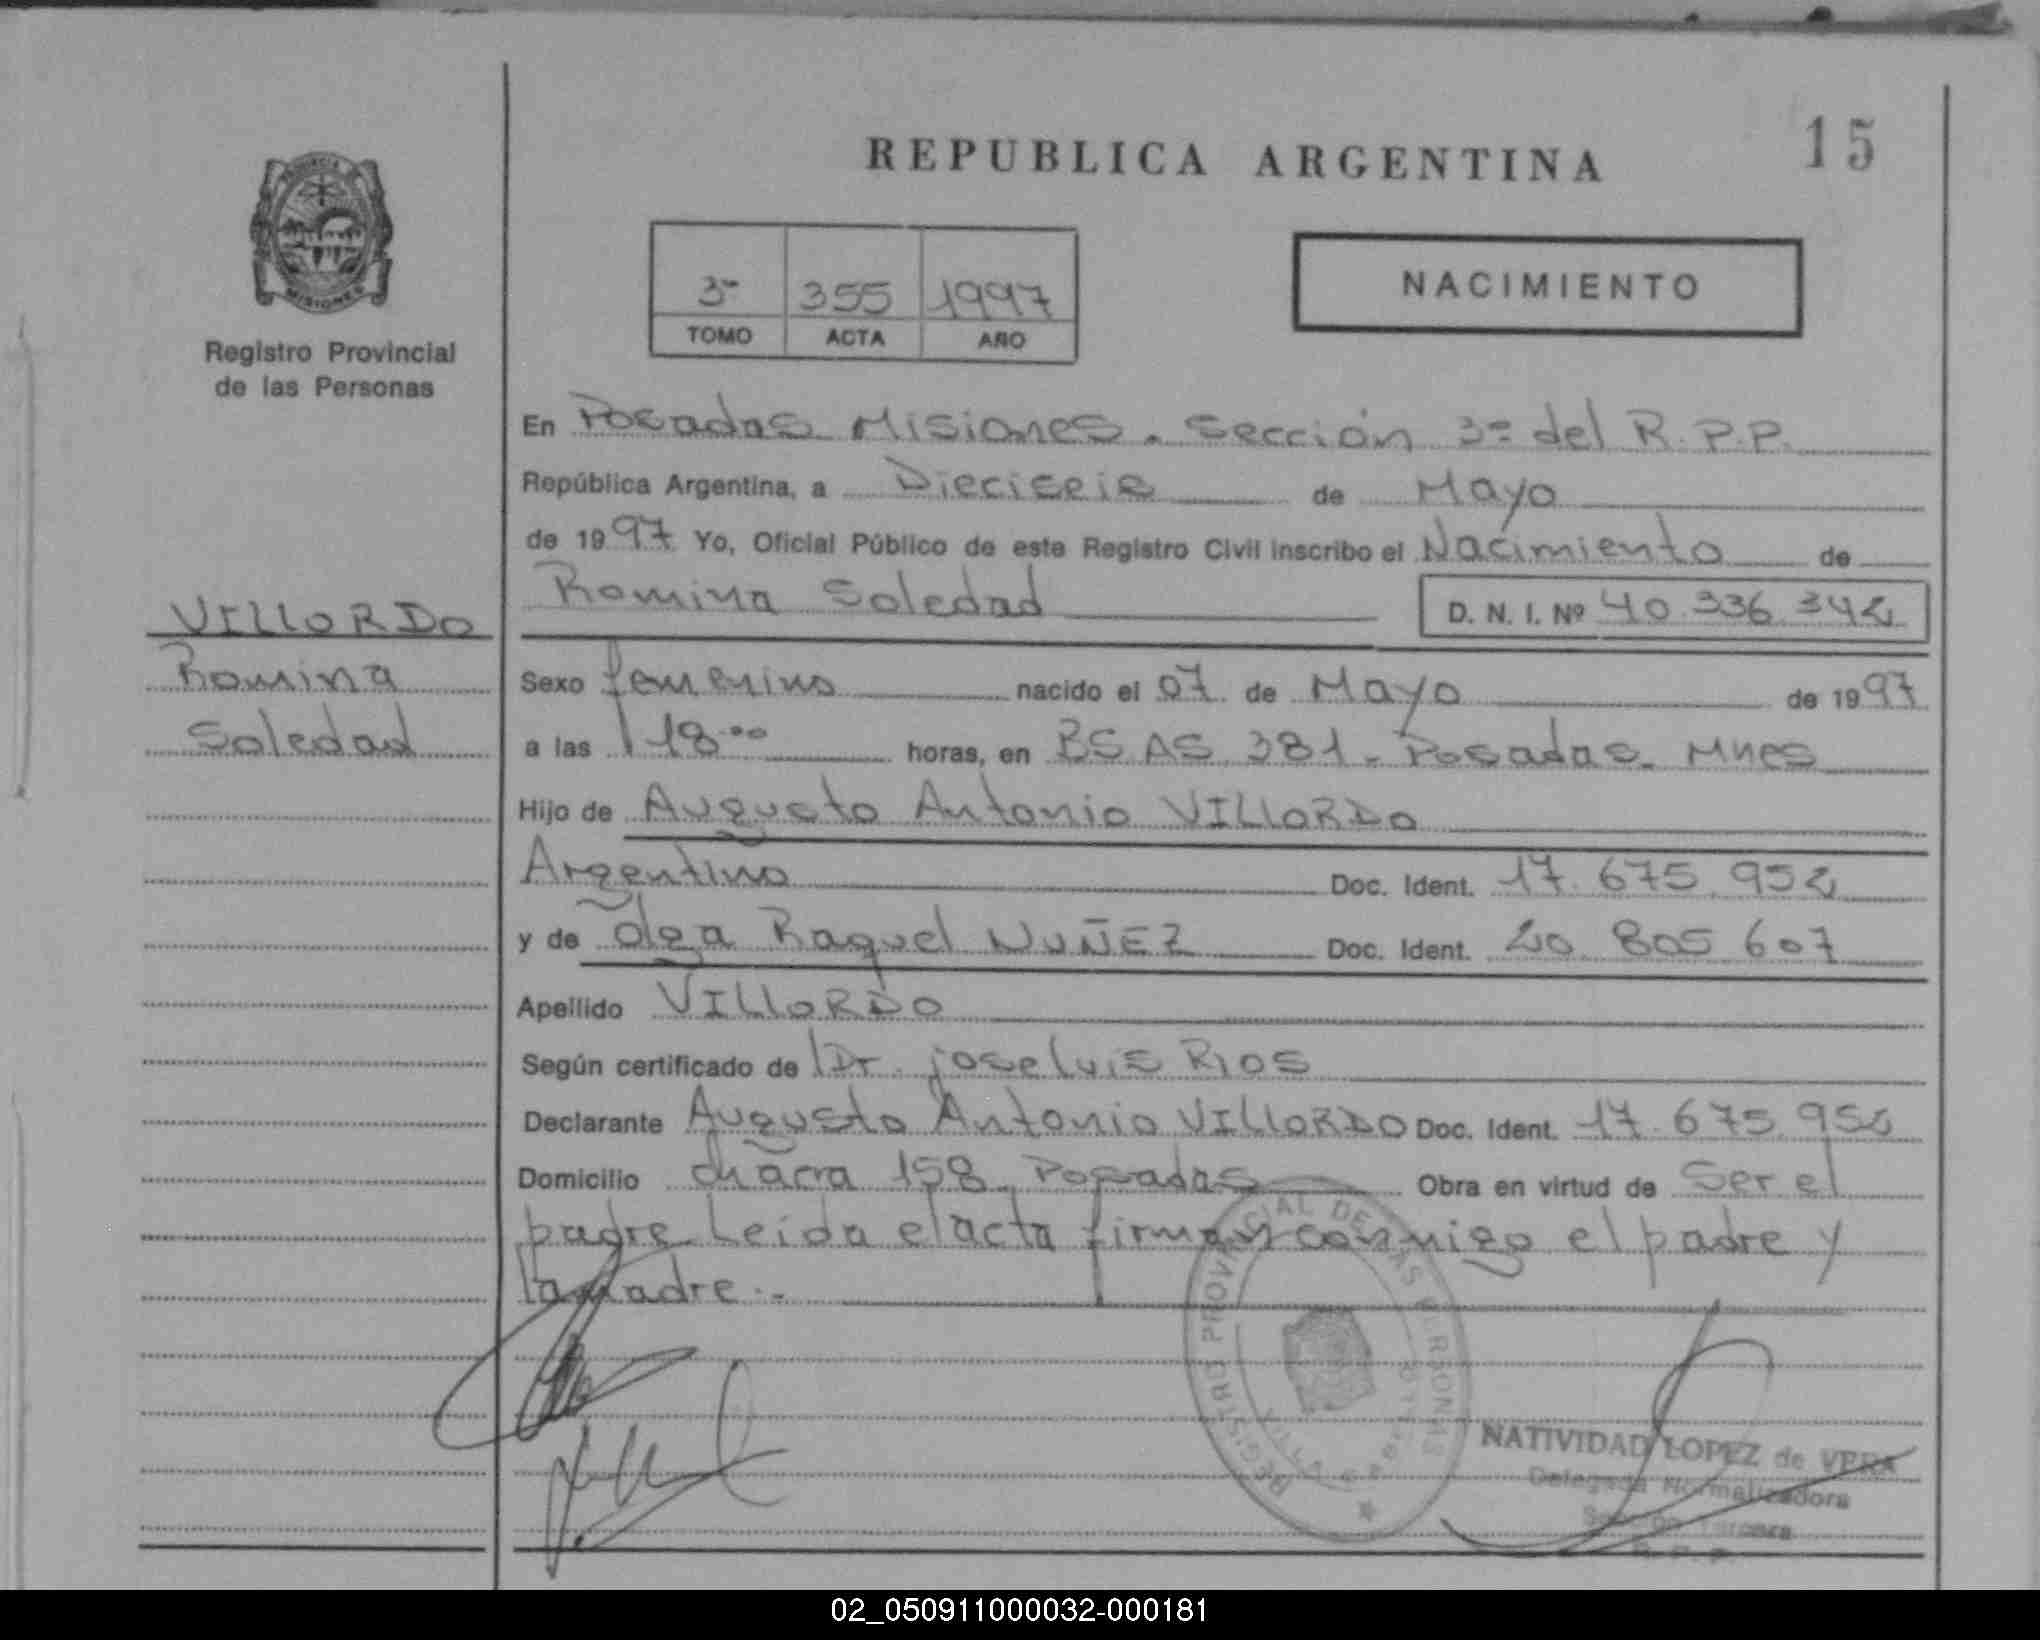 REPUBLICA ARGENTINA
15
PROVINCIA
MISIONES
Registro Provincial
de las Personas
3º 355 1997
TOMO ACTA AÑO
NACIMIENTO
En Posadas Misiones. Sección 3º del R.P.P.
República Argentina, a Dieciseis de Mayo
de 1997 Yo, Oficial Público de este Registro Civil inscribo el Nacimiento de
Romina Soledad D. N. I. Nº 40.336.342
VILLORDO
Romina
Soledad
Sexo femenino nacido el 07 de Mayo de 1997
a las 18.00 horas, en BS.AS. 381. Posadas. Mnes
Hijo de Augusto Antonio VILLORDO
Argentino Doc. Ident. 17.675.952
y de Olga Raquel NUÑEZ Doc. Ident. 20.805.607
Apellido VILLORDO
Según certificado de Dr. Jose Luis Rios
Declarante Augusto Antonio VILLORDO Doc. Ident. 17.675.952
Domicilio chacra 158 Posadas Obra en virtud de Ser el
padre Leida el acta firman conmigo el padre y
la madre.-
REGISTRO PROVINCIAL DE LAS PERSONAS
VILLA CABELLO
NATIVIDAD LOPEZ de VERA
Delegada Normalizadora
Sección Tercera
R. P. P.
02_050911000032-000181